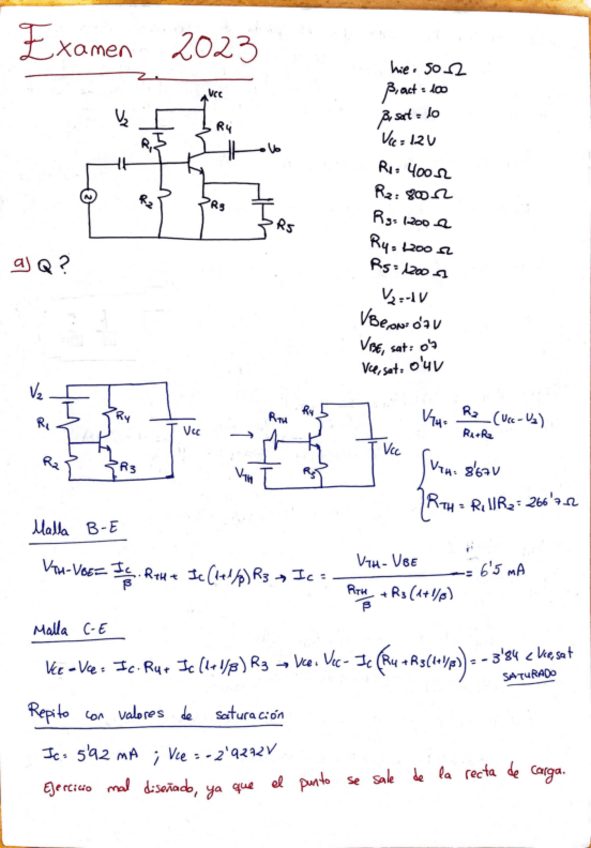 Examen 2023
hie = 50 Ω
β,act = 100
β,sat = 10
Vcc = 12V
R1 = 400 Ω
R2 = 800 Ω
R3 = 1200 Ω
R4 = 1200 Ω
R5 = 1200 Ω
V2 = -1V
VBE,ON = 0'7V
VBE, sat = 0'7
Vce, sat = 0'4V
Vcc
V2
R1
R4
Vo
R2
R3
R5
a) Q?
V2
R1
R4
Vcc
R2
R3
RTH
R4
Vcc
VTH
R3
VTH = R2/(R1+R2) (Vcc - V2)
VTH = 8'67V
RTH = R1 || R2 = 266'7 Ω
Malla B-E
VTH - VBE = Ic/β · RTH + Ic (1+1/β) R3 → Ic = (VTH - VBE)/(RTH/β + R3 (1+1/β)) = 6'5 mA
Malla C-E
Vcc - Vce = Ic · R4 + Ic (1+1/β) R3 → Vce = Vcc - Ic (R4 + R3 (1+1/β)) = -3'84 < Vce, sat
SATURADO
Repito con valores de saturación
Ic = 5'92 mA ; Vce = -2'9272V
Ejercicio mal diseñado, ya que el punto se sale de la recta de carga.